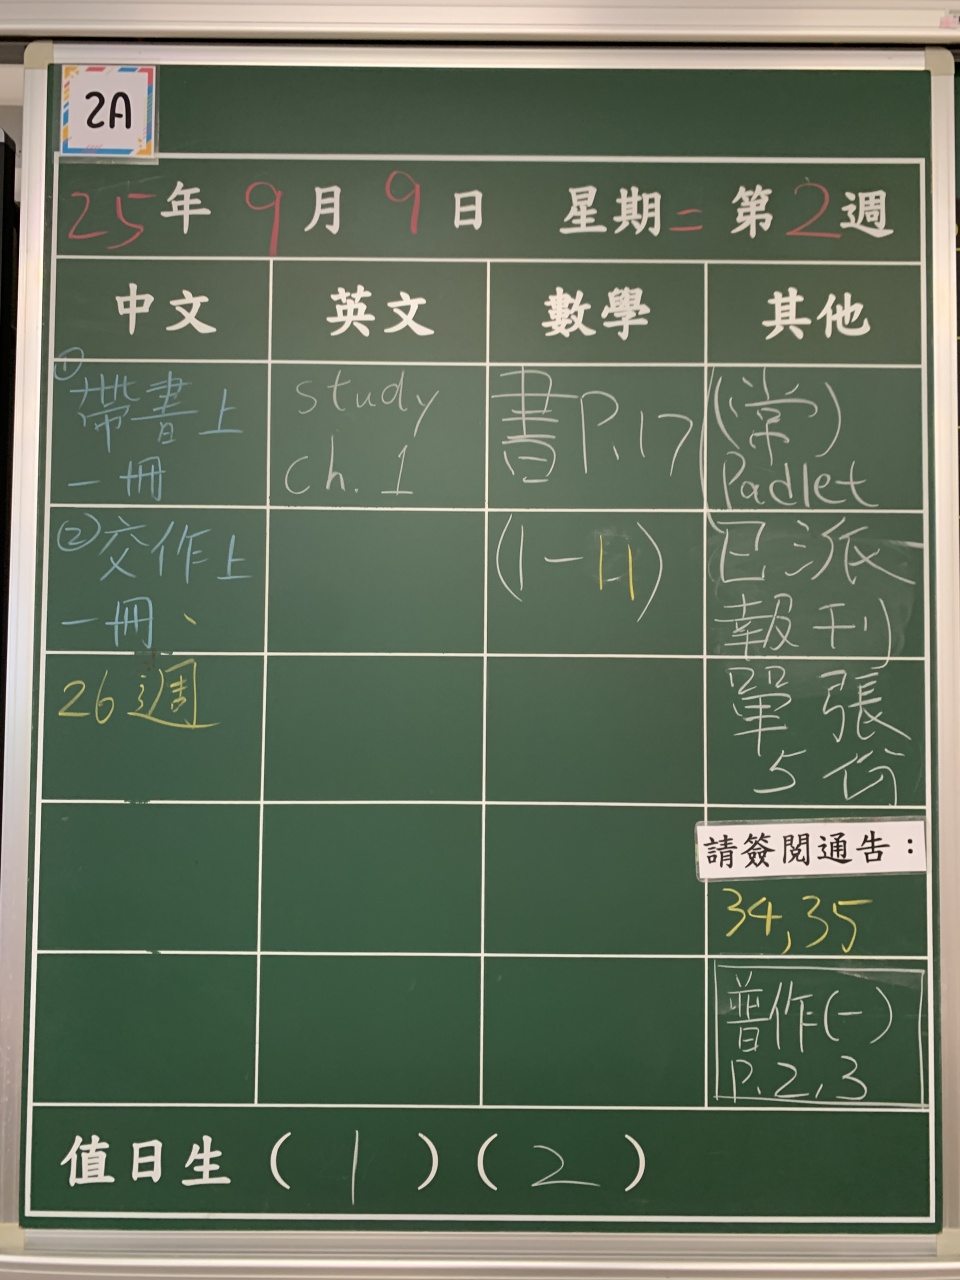 2A
25年 9月 9日 星期二 第2週
中文 英文 數學 其他
① 帶書上
一冊
② 交作上
一冊、
26週
study
Ch. 1
書P.17
(1-11)
(常)
Padlet
已派
報刊
單張
5份
請簽閱通告：
34,35
普作(一)
P.2,3
值日生(1)(2)